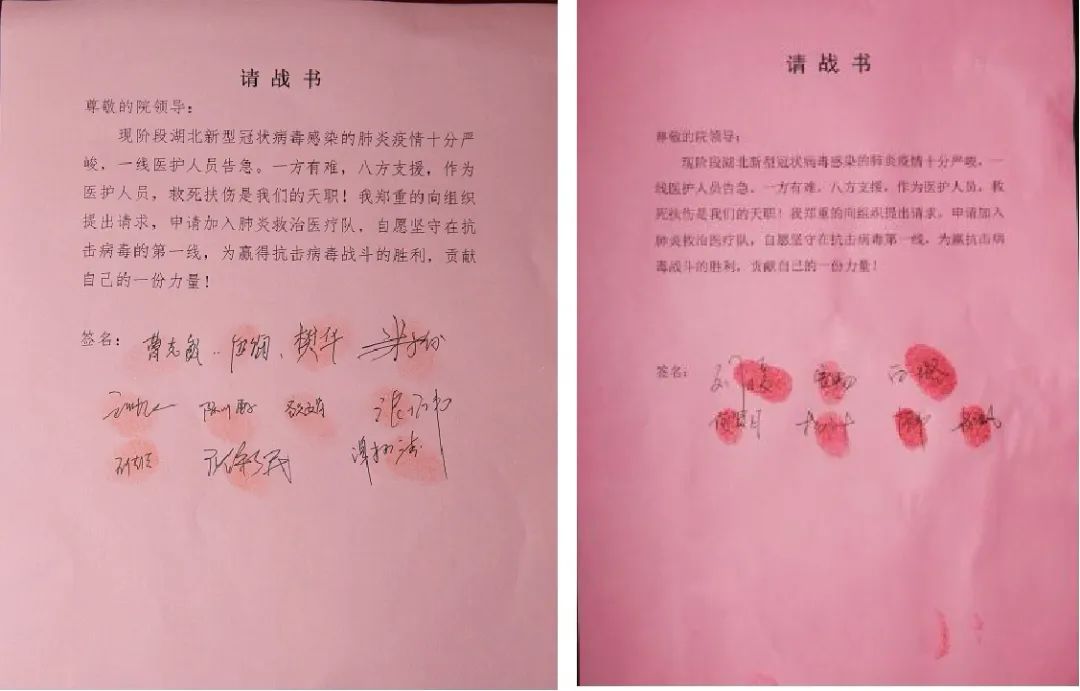 请战书
尊敬的院领导：
现阶段湖北新型冠状病毒感染的肺炎疫情十分严
峻，一线医护人员告急。一方有难，八方支援，作为
医护人员，救死扶伤是我们的天职！我郑重的向组织
提出请求，申请加入肺炎救治医疗队，自愿坚守在抗
击病毒的第一线，为赢得抗击病毒战斗的胜利，贡献
自己的一份力量！
签名：
樊华
请战书
尊敬的院领导：
现阶段湖北新型冠状病毒感染的肺炎疫情十分严峻，一
线医护人员告急。一方有难，八方支援，作为医护人员，救
死扶伤是我们的天职！我郑重的向组织提出请求，申请加入
肺炎救治医疗队，自愿坚守在抗击病毒第一线，为赢抗击病
毒战斗的胜利，贡献自己的一份力量！
签名：